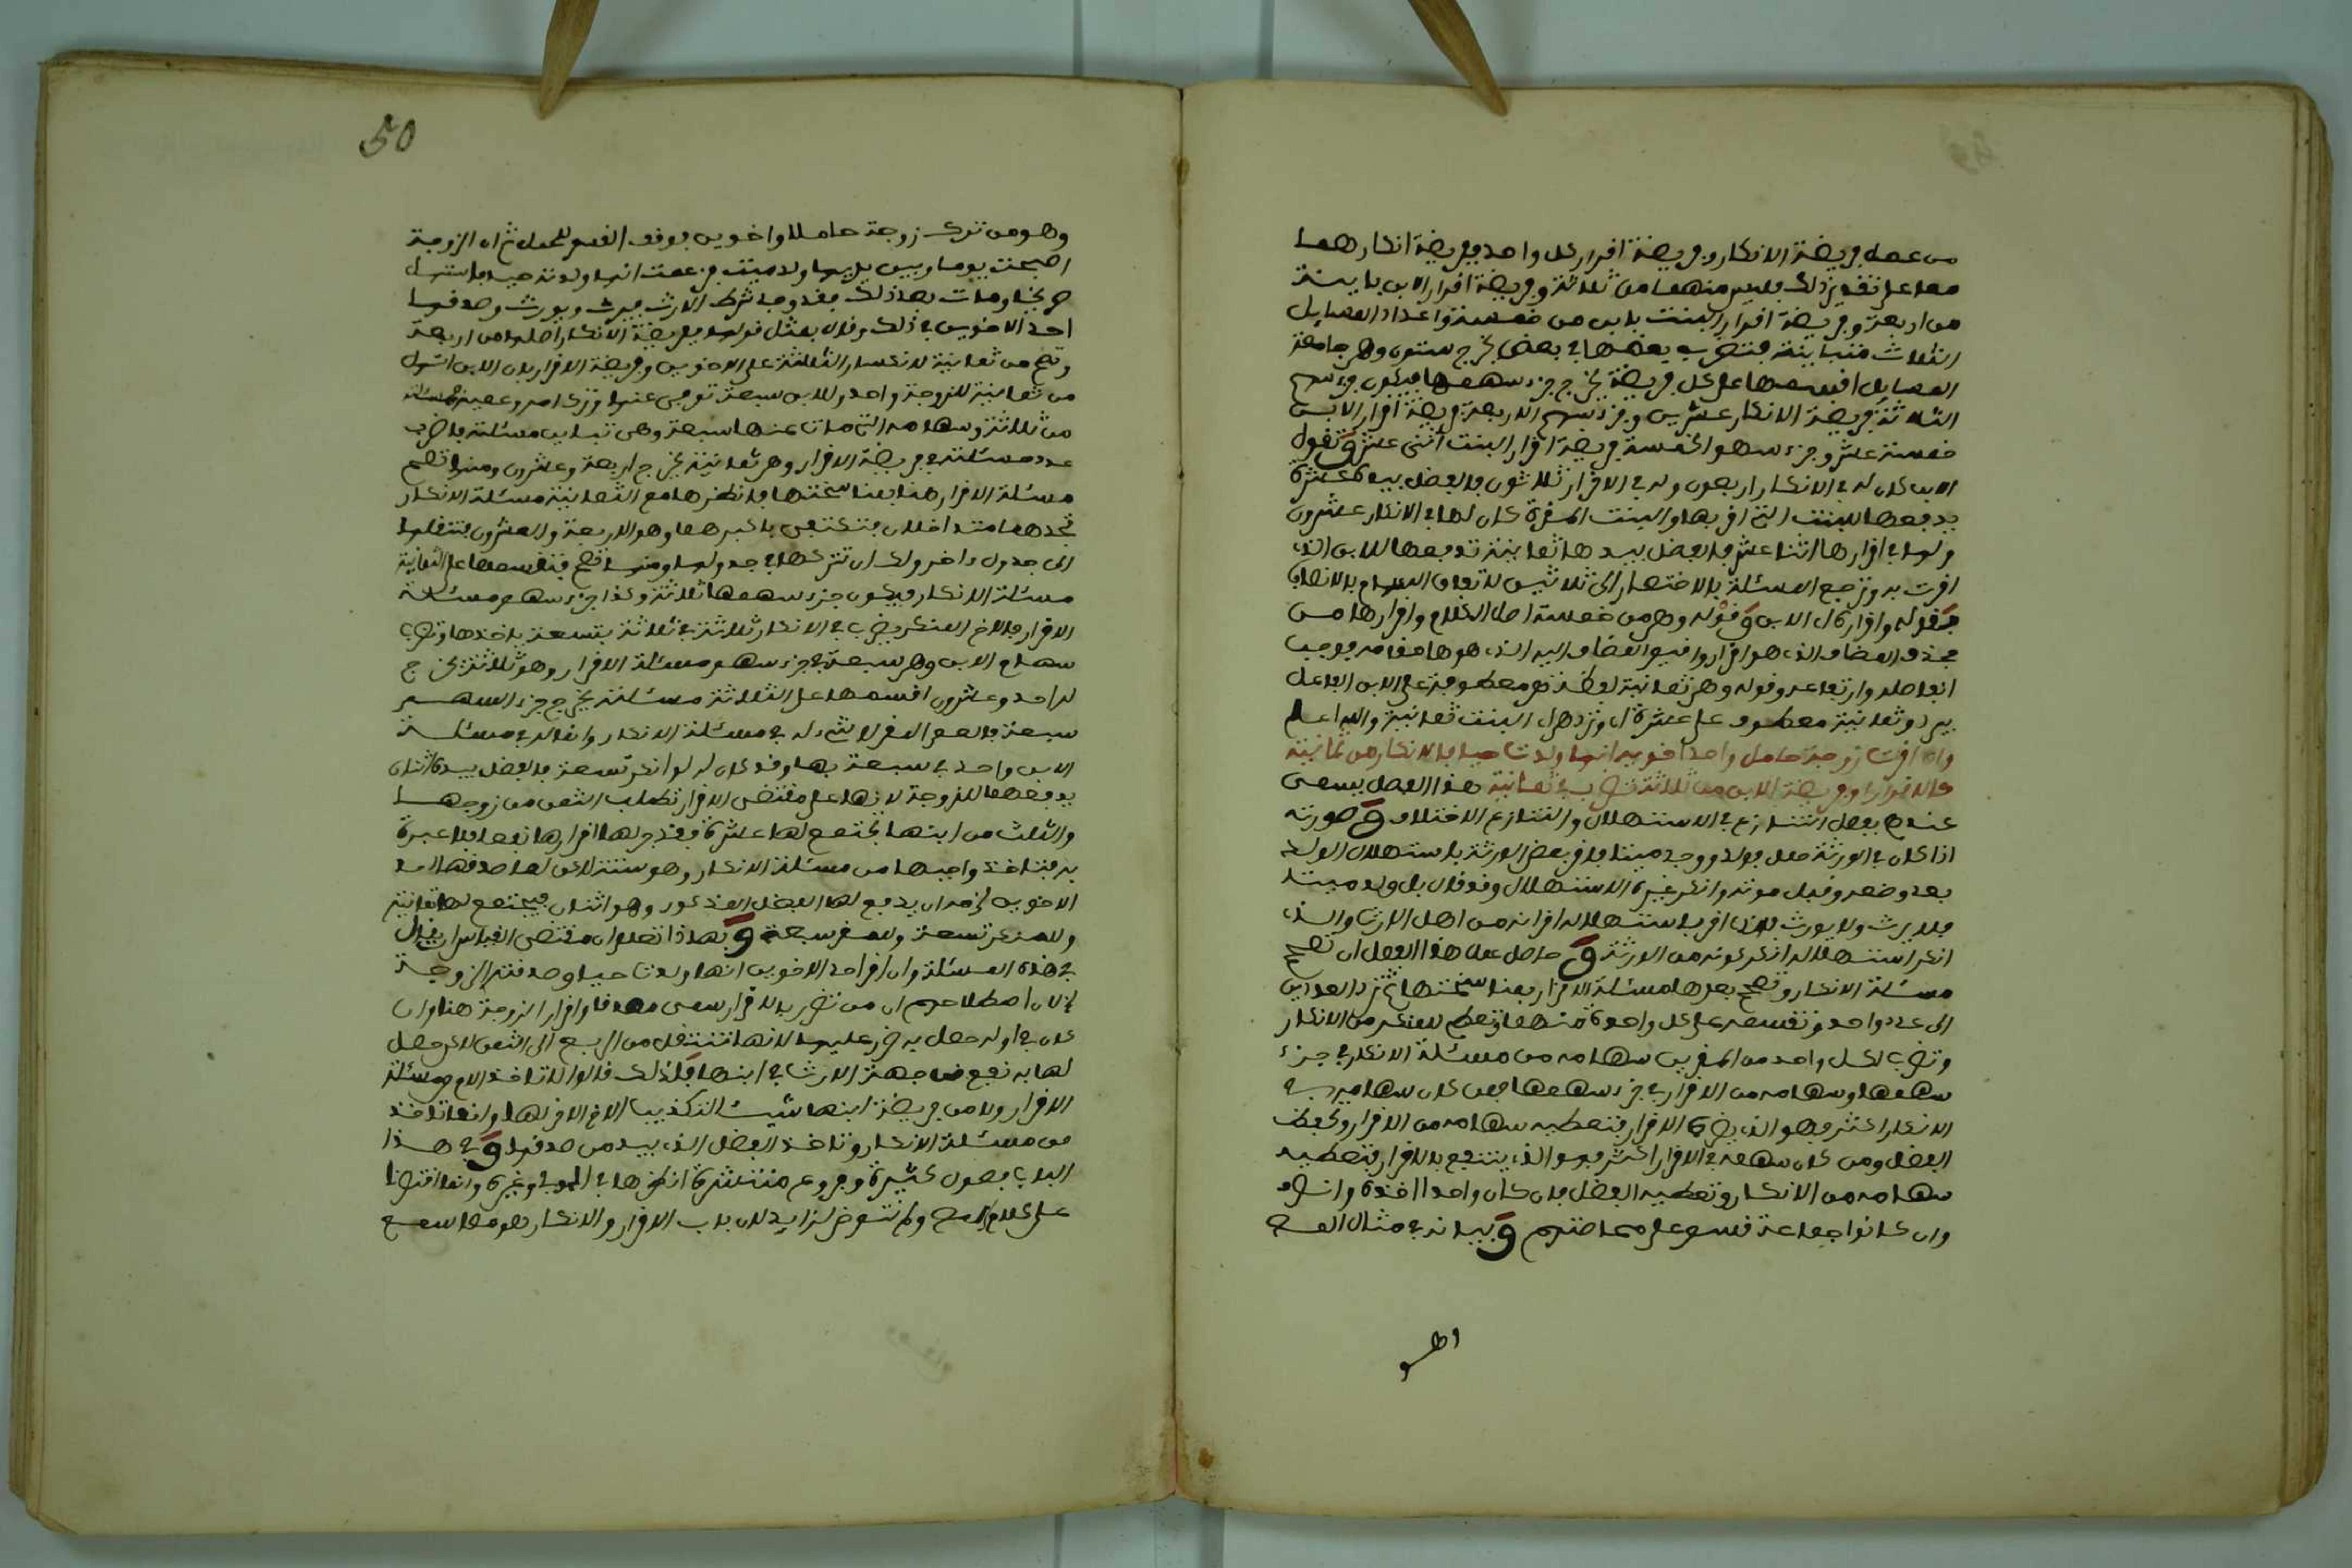 من عمل فريضة الانكار وفريضة اقرار كل واحد وفريضة انكارهما
معا على تقدير ذلك منهما من ثلاثة وفريضة اقرار الابن بابنة
من اربعة وفريضة اقرار البنت بابن من خمسة واعداد المسايل
الثلاث متباينة فتضرب بعضها في بعض يخرج ستون وهي جامعة
المسايل اقسمها على كل فريضة يخرج جزء سهمها فيكون جزء سهم
الثلاثة فريضة الانكار عشرين وجزء سهم الاربعة فريضة اقرار الابن
خمسة عشر وجزء سهم الخمسة فريضة اقرار البنت اثنى عشر وتقول
الابن كان له في الانكار اربعون وله في الاقرار ثلاثون فالفضل بيده عشرة
يدفعها للبنت التي اقر بها والبنت المقرة كان لها في الانكار عشرون
ولها في اقرارها اثنا عشر فالفضل بيدها ثمانية تدفعها للابن الذي
اقرت به وترجع المسئلة بالاختصار الى ثلاثين لاتفاق السهام بالانصاف
فقوله واقرار الابن وقوله وهي من خمسة اصل الكلام واقرارها من
فحذف المضاف الذي هو اقرار واقيم المضاف اليه الذي هو ها مقامه فوجب
انفصاله وارتفاعه وقوله وهي ثمانية لفظة هي معطوفة على الابن الفاعل
بيرد وثمانية معطوف على عشرة اي وترد هي اي البنت ثمانية والله اعلم
وان اقرت زوجة حامل واحد اخويه انها ولدت حيا فالانكار من ثمانية
كالاقرار وفريضة الابن من ثلاثة تضرب في ثمانية هذا الفصل يسمى
عندهم بفصل التنازع في الاستهلال والتنازع الاختلاف وصورته
اذا كان في الورثة حمل فولد ووجد ميتا فاقر بعض الورثة باستهلال الولد
بعد وضعه وقبل موته وانكر غيره الاستهلال وقد قال بل ولد ميتا
فلا يرث ولا يورث فالذي اقر باستهلاله اقر انه من اهل الارث والذي
انكر استهلاله انكر كونه من الورثة وحاصل عمل هذا الفصل ان تصحح
مسئلة الانكار وتصحح بعدها مسئلة الاقرار بمناسختها ثم ترد العددين
الى عدد واحد وتقسمه على كل واحدة منهما وتعطي للمنكر من الانكار
وتضرب لكل واحد من المقرين سهامه من مسئلة الانكار في جزء
سهمها وسهامه من الاقرار في جزء سهمها فمن كان سهامه في
الانكار اكثر فهو الذي يضره الاقرار فتعطيه سهامه من الاقرار وتحفظ
الفضل ومن كان سهمه في الاقرار اكثر فهو الذي ينتفع بالاقرار فتعطيه
سهامه من الانكار وتعطيه الفضل فان كان واحدا اخذه وانفرد
وان كانوا جماعة قسم على محاصتهم وبيانه في مثال المص
50
وهو من ترك زوجة حاملا واخوين فوقف القسم للحمل ثم ان الزوجة
اصبحت يوما وبين يديها ولد ميت فزعمت انها ولدته حيا فاستهل
صريخا ومات بعد ذلك فقد وجد شرط الارث فيرث ويورث وصدقها
احد الاخوين في ذلك وقال بمثل قولها ففريضة الانكار اصلها من اربعة
وتصح من ثمانية لانكسار الثلاثة على الاخوين وفريضة الاقرار بان الابن استهل
من ثمانية للزوجة واحد وللابن سبعة توفي عنها وترك امه وعميه فمسئلته
من ثلاثة وسهامه التي مات عنها سبعة وهي تباين مسئلته فاضرب
عدد مسئلته في فريضة الاقرار وهي ثمانية يخرج اربعة وعشرون ومنها تصح
مسئلة الاقرار هنا بمناسختها فانظرها مع الثمانية مسئلة الانكار
تجدهما متداخلان فتكتفي باكبرهما وهو الاربعة والعشرون فتنقلها
الى جدول اخر ولك ان تتركها في جدولها ومنها تصح فتقسمها على الثمانية
مسئلة الانكار فيكون جزء سهمها ثلاثة وكذا جزء سهم مسئلة
الاقرار فالاخ المنكر يضرب في الانكار ثلاثة في ثلاثة بتسعة ياخذها وتضرب
سهام الابن وهي سبعة في جزء سهم مسئلة الاقرار وهو ثلاثة يخرج
له احد وعشرون اقسمها على الثلاثة مسئلته يخرج جزء السهم
سبعة فالعم المقر لا شيء له في مسئلة الانكار وانما له في مسئلة
الابن واحد في سبعة بها وقد كان له لو انكر تسعة فالفضل بيده اثنان
يدفعهما للزوجة لانها على مقتضى الاقرار تطلب الثمن من زوجها
والثلث من ابنها يجتمع لها عشرة وقد جر لها اقرارها نفعا فلا عبرة
به فتاخذ واجبها من مسئلة الانكار وهو ستة لاكن لما صدقها احد
الاخوين لزمه ان يدفع لها الفضل المذكور وهو اثنان فيجتمع لها ثمانية
وللمنكر تسعة وللمقر سبعة وبهذا تعلم ان مقتضى القياس ان يقال
في هذه المسئلة وان اقر احد الاخوين انها ولدت حيا وصدقته الزوجة
لان اصطلاحهم ان من تضرر بالاقرار سمى مصدقا واقرار الزوجة هنا وان
كان في اوله حصل به ضرر عليها لانها تنتقل من الربع الى الثمن لاكن حصل
لها به نفع من جهة الارث في ابنها فلذلك قالوا لا تاخذ الام من مسئلة
الاقرار ولا من فريضة ابنها شيئا لتكذيب الاخ الاخر لها وانما تاخذ
من مسئلة الانكار وتاخذ الفضل الذي بيد من صدقها وفي هذا
الباب فصول كثيرة وفروع منتشرة انظرها في الحوفي وغيره وانما اقتصرنا
على كلام المص ولم نتعرض لزايد لان باب الاقرار والانكار هو مما سمع